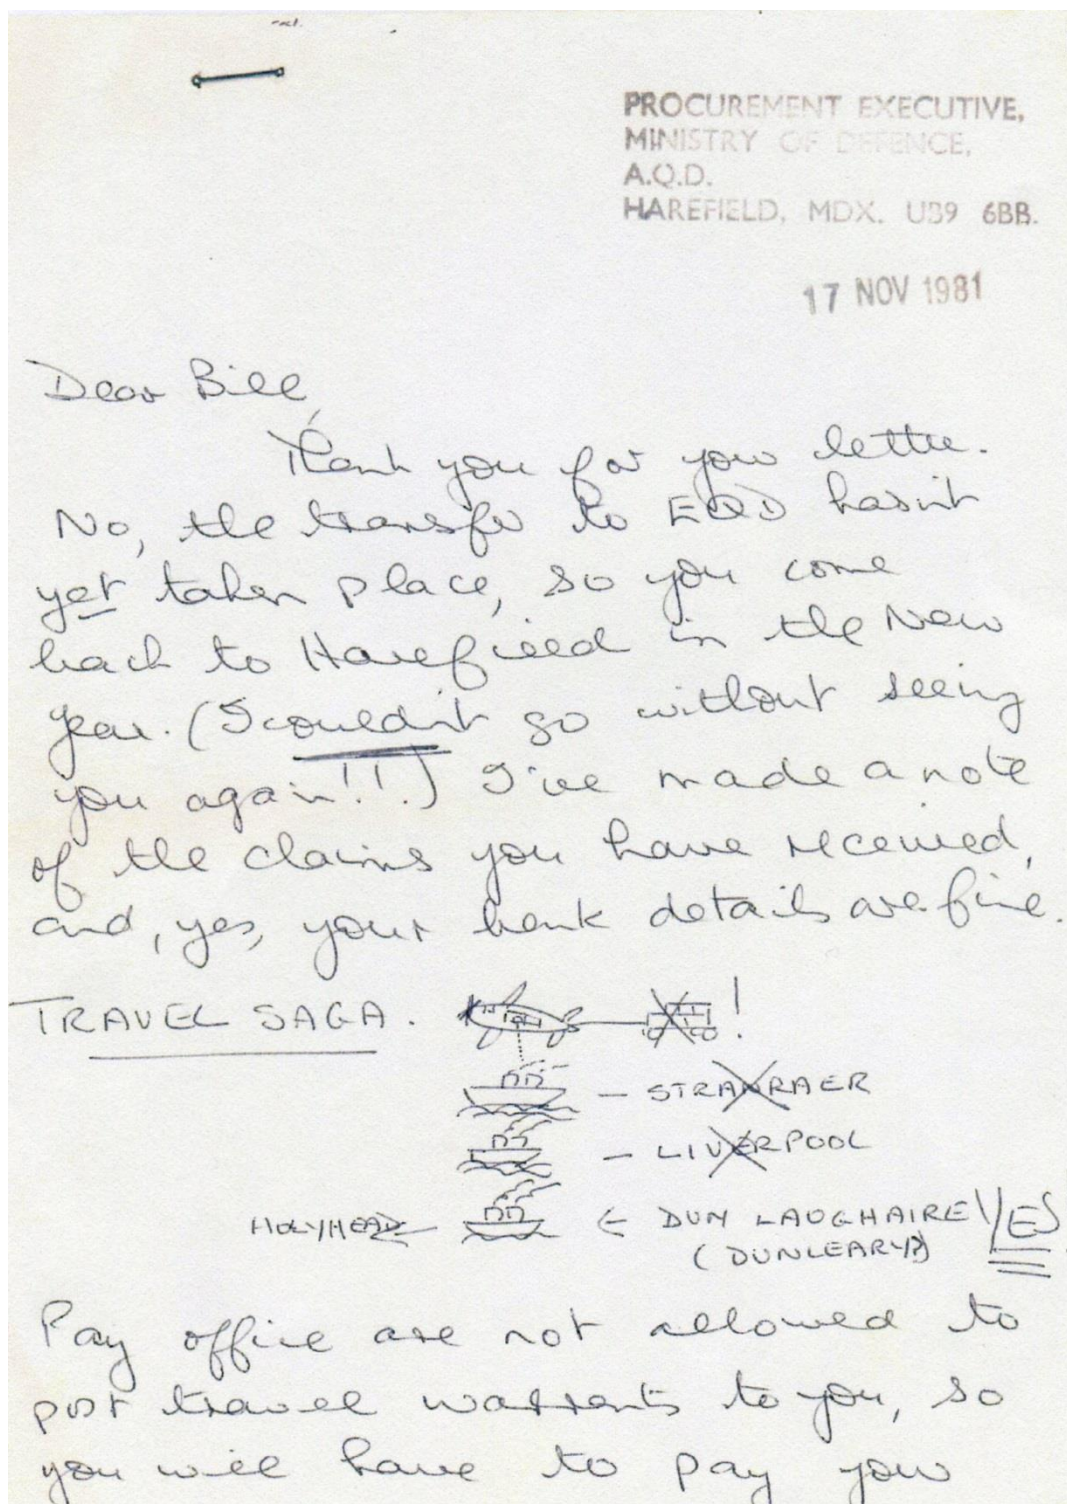 PROCUREMENT EXECUTIVE,
MINISTRY OF DEFENCE,
A.Q.D.
HAREFIELD, MDX. UB9 6BB.
17 NOV 1981
Dear Bill,
Thank you for your letter.
No, the transfer to EQD hasn't
yet taken place, so you come
back to Harefield in the New
Year. (I couldn't go without seeing
you again!!!) I've made a note
of the claims you have received,
and, yes, your bank details are fine.
TRAVEL SAGA. !
— STRANRAER
— LIVERPOOL
HOLYHEAD ← ← DUN LAUGHAIRE YES
(DUNLEARY?)
Pay office are not allowed to
post travel warrants to you, so
you will have to pay your